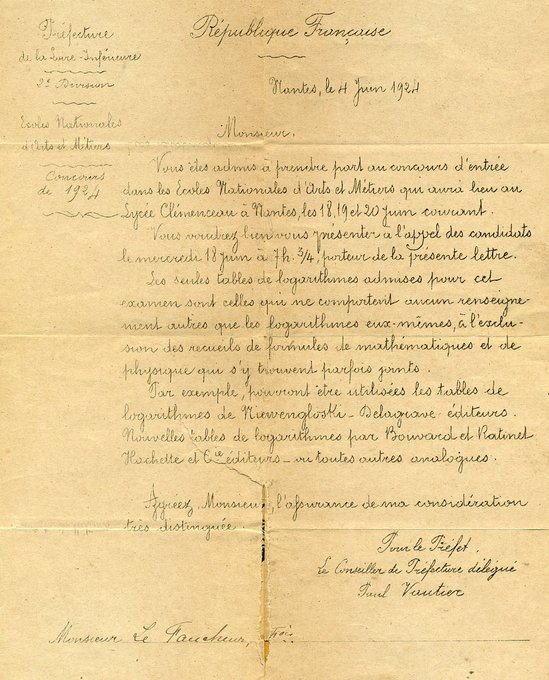 Préfecture
de la Loire-Inférieure
2e Division
Ecoles Nationales
d'Arts et Métiers
Concours
de 1924
République Française
Nantes, le 4 Juin 1924
Monsieur.
Vous êtes admis à prendre part au concours d'entrée
dans les Ecoles Nationales d'Arts et Métiers qui aura lieu au
Lycée Clémenceau à Nantes, les 18, 19 et 20 Juin courant.
Vous voudrez bien vous présenter à l'appel des candidats
le mercredi 18 juin à 7h. 3/4, porteur de la présente lettre.
Les seules tables de logarithmes admises pour cet
examen sont celles qui ne comportent aucun renseigne-
ment autres que les logarithmes eux-mêmes, à l'exclu-
sion des recueils de formules de mathématiques et de
physique qui s'y trouvent parfois joints.
Par exemple, pourront être utilisées les tables de
logarithmes de Niewengloski - Delagrave éditeurs.
Nouvelles tables de logarithmes par Bouvard et Ratinet
Hachette et Cie éditeurs - ou toutes autres analogues.
Agréez, Monsieur, l'assurance de ma considération
très distinguée.
Pour le Préfet,
Le Conseiller de Préfecture délégué
Paul Vautier
Monsieur Le Faucheur,